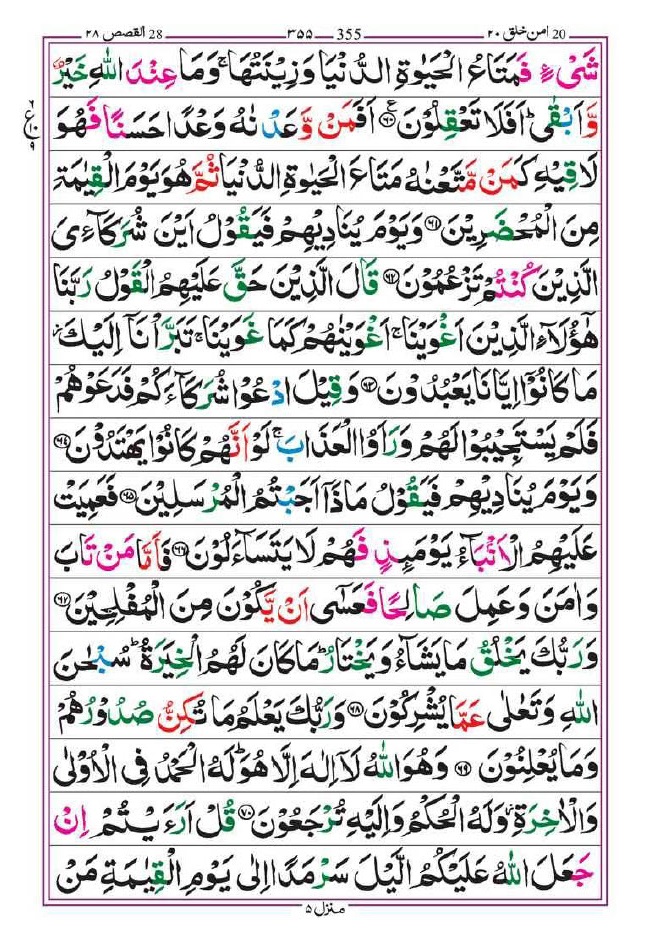 20 امن خلق ۲۰ 355 ۳۵۵ 28 القصص ۲۸
شَیْءٍ فَمَتَاعُ الْحَیٰوةِ الدُّنْیَا وَزِیْنَتُهَا ۚ وَمَا عِنْدَ اللّٰهِ خَیْرٌ
وَّاَبْقٰی ؕ اَفَلَا تَعْقِلُوْنَ ﴿۶۰﴾ اَفَمَنْ وَّعَدْنٰهُ وَعْدًا حَسَنًا فَهُوَ
لَاقِیْهِ كَمَنْ مَّتَّعْنٰهُ مَتَاعَ الْحَیٰوةِ الدُّنْیَا ثُمَّ هُوَ یَوْمَ الْقِیٰمَةِ
مِنَ الْمُحْضَرِیْنَ ﴿۶۱﴾ وَیَوْمَ یُنَادِیْهِمْ فَیَقُوْلُ اَیْنَ شُرَكَآءِیَ
الَّذِیْنَ كُنْتُمْ تَزْعُمُوْنَ ﴿۶۲﴾ قَالَ الَّذِیْنَ حَقَّ عَلَیْهِمُ الْقَوْلُ رَبَّنَا
هٰۤؤُلَآءِ الَّذِیْنَ اَغْوَیْنَا ۚ اَغْوَیْنٰهُمْ كَمَا غَوَیْنَا ۚ تَبَرَّاْنَاۤ اِلَیْكَ ؗ
مَا كَانُوْۤا اِیَّانَا یَعْبُدُوْنَ ﴿۶۳﴾ وَقِیْلَ ادْعُوْا شُرَكَآءَكُمْ فَدَعَوْهُمْ
فَلَمْ یَسْتَجِیْبُوْا لَهُمْ وَرَاَوُا الْعَذَابَ ۚ لَوْ اَنَّهُمْ كَانُوْا یَهْتَدُوْنَ ﴿۶۴﴾
وَیَوْمَ یُنَادِیْهِمْ فَیَقُوْلُ مَاذَاۤ اَجَبْتُمُ الْمُرْسَلِیْنَ ﴿۶۵﴾ فَعَمِیَتْ
عَلَیْهِمُ الْاَنْۢبَآءُ یَوْمَىِٕذٍ فَهُمْ لَا یَتَسَآءَلُوْنَ ﴿۶۶﴾ فَاَمَّا مَنْ تَابَ
وَاٰمَنَ وَعَمِلَ صَالِحًا فَعَسٰۤی اَنْ یَّكُوْنَ مِنَ الْمُفْلِحِیْنَ ﴿۶۷﴾
وَرَبُّكَ یَخْلُقُ مَا یَشَآءُ وَیَخْتَارُ ؕ مَا كَانَ لَهُمُ الْخِیَرَةُ ؕ سُبْحٰنَ
اللّٰهِ وَتَعٰلٰی عَمَّا یُشْرِكُوْنَ ﴿۶۸﴾ وَرَبُّكَ یَعْلَمُ مَا تُكِنُّ صُدُوْرُهُمْ
وَمَا یُعْلِنُوْنَ ﴿۶۹﴾ وَهُوَ اللّٰهُ لَاۤ اِلٰهَ اِلَّا هُوَ ؕ لَهُ الْحَمْدُ فِی الْاُوْلٰی
وَالْاٰخِرَةِ ؗ وَلَهُ الْحُكْمُ وَاِلَیْهِ تُرْجَعُوْنَ ﴿۷۰﴾ قُلْ اَرَءَیْتُمْ اِنْ
جَعَلَ اللّٰهُ عَلَیْكُمُ الَّیْلَ سَرْمَدًا اِلٰی یَوْمِ الْقِیٰمَةِ مَنْ
منزل ۵